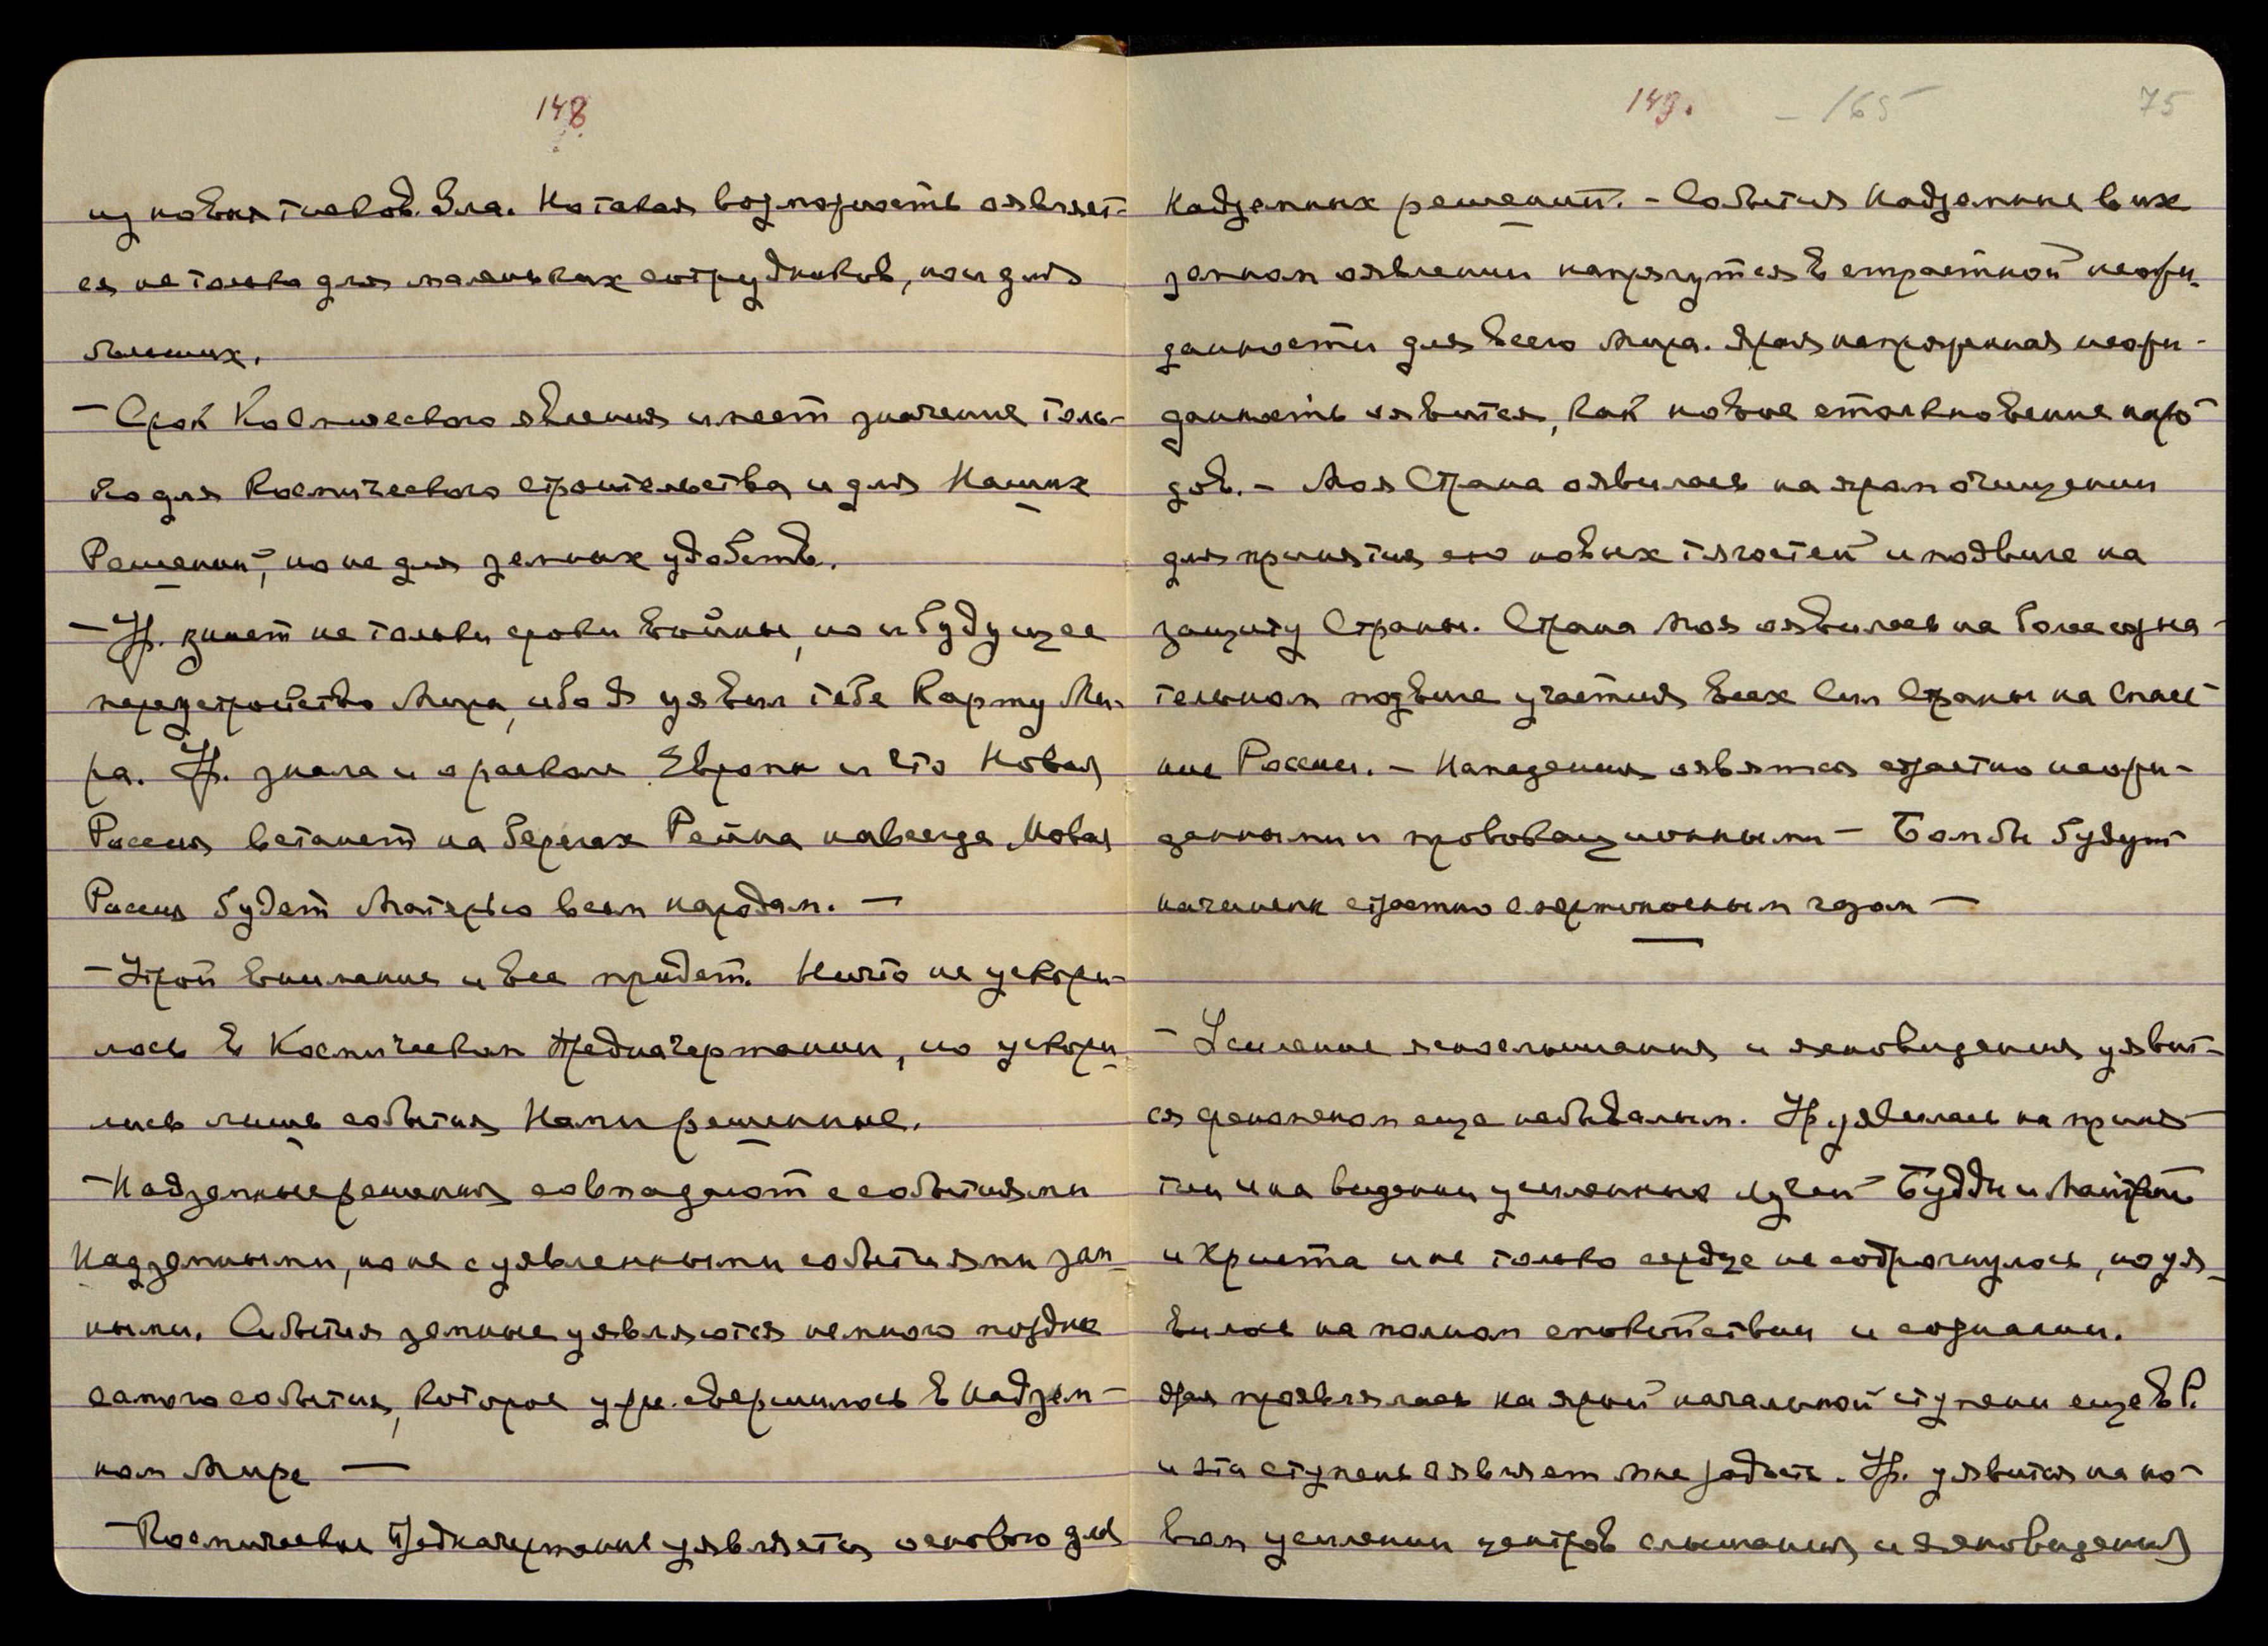 148
из новых тисков Зла. Но такая возможность оявляет-
ся не только для маленьких сотрудников, но и для
больших.
— Срок Космического явления имеет значение толь-
ко для Космического строительства и для Наших
Решений, но не для земных удобств.
— Ур. знает не только сроки войны, но и будущее
переустройство Мира, ибо Я уявил тебе Карту Ми-
ра. Ур. знала и о расколе Европы и что Новая
Россия встанет на берегах Рейна навсегда. Новая
Россия будет Матерью всем народам. —
— Утрой внимание и все придет. Ничто не ускори-
лось в Космическом Предначертании, но ускори-
лись лишь события Нами решенные.
— Надземные решения совпадают с событиями
Надземными, но не с уявленными событиями зем-
ными. События земные уявляются немного позднее
самого события, которое уже свершилось в Надзем-
ном Мире —
— Космическое Предначертание уявляется основою для
149. – 165 75
Надземных решений. — События Надземные в их
земном оявлении напрягутся в страстной неожи-
данности для всего Мира. Ярая напряженная неожи-
данность оявится, как новое столкновение наро-
дов. — Моя Страна оявилась на яром очищении
для принятия ею новых тягостей и подвига на
защиту Страны. Страна Моя оявилась на более созна-
тельном подвиге участия всех Сил Страны на спасе-
ние России. — Нападения оявятся страстно неожи-
данными и провокационными — Бомбы будут
начинены страстно смертоносным газом —
— Усиление яснослышания и ясновидения уявит-
ся феноменом еще небывалым. Ур. уявилась на приня-
тии и на видении усиленных лучей Будды и Майтрейи
и Христа и не только сердце не содрогнулось, но уя-
вилось на полном спокойствии и сознании.
Ярая проявлялась на ярой начальной ступени еще в Р.
и эта ступень оявляет мне радость. Ур. уявится на но-
вом усилении центров слышания и ясновидения